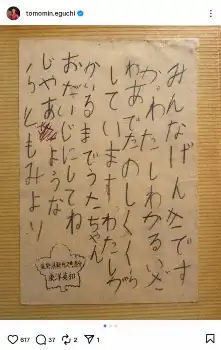 tomomin.eguchi
みんなげんきです
か。わたしわかるいざ
わあでたのしくくら
しています。わたしが
かいるまでうたちゃん
おだいじにしてね
じゃあ ような
らともみより
東洋英和
617 37 2 1